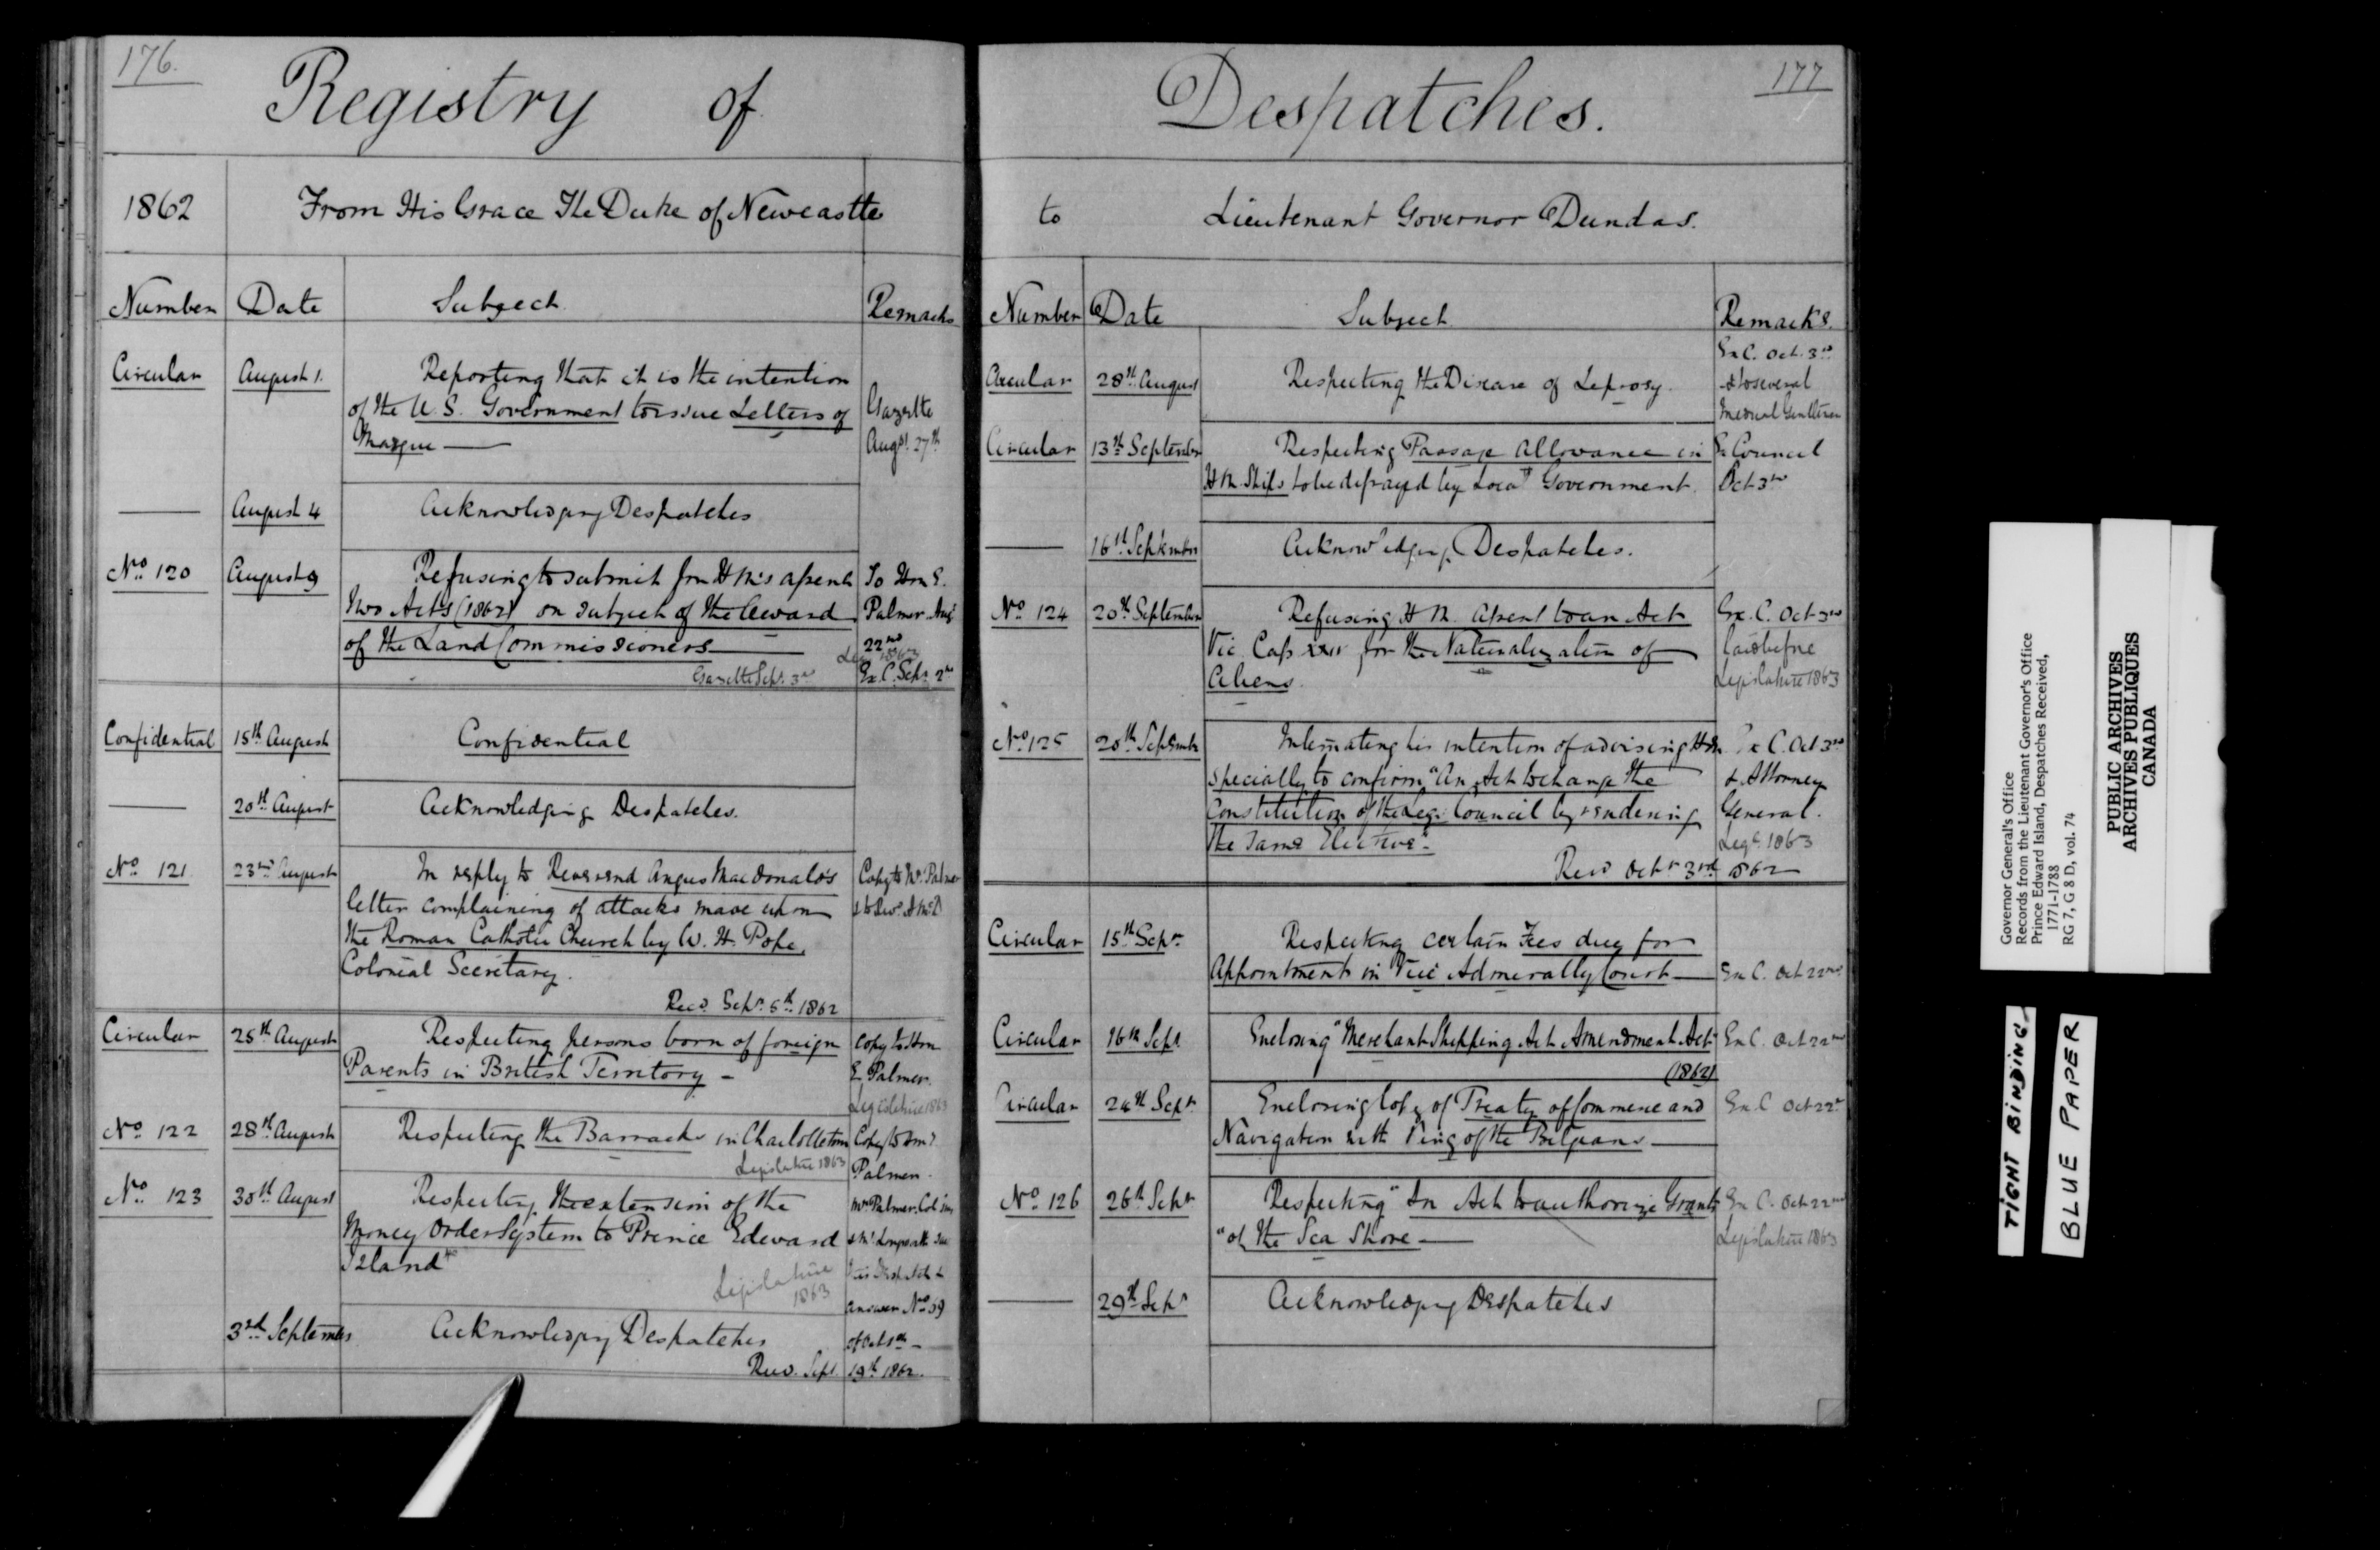 176.
Registry of
1862 From His Grace The Duke of Newcastle
Number Date Subject Remarks
Circular August 1. Reporting that it is the intention
of the U.S. Government to issue Letters of Gazette
Marque — Augst. 27th
— August 4 Acknowledging Despatches
No. 120 August 9 Refusing to submit for H M's assent To Hon E.
two Acts (1862) on subject of the Award Palmer Augt
of the Land Commissioners — 22nd
Gazette Sepr. 3rd Ex. C. Sepr. 2nd
Confidential 15th August Confidential
— 20th August Acknowledging Despatches.
No. 121 23rd August In reply to Reverend Angus MacDonald's Copy to Mr. Palmer
letter complaining of attacks made upon & to Revd. A McD
the Roman Catholic Church by W. H. Pope,
Colonial Secretary.
Recd. Sepr. 5th 1862
Circular 25th August Respecting persons born of foreign Copy to Hon
Parents in British Territory – E. Palmer.
Legislature 1863
No. 122 28th August Respecting the Barracks in Charlottetown Copy to Hon.
Legislature 1863 Palmer.
No. 123 30th August Respecting the extension of the Mr Palmer. Col Sec
Money Order System to Prince Edward
Island
Legislature
1863
this Despatch &
answer No. 59
3rd September Acknowledging Despatches of Oct
Recd. Sept. 19th 1862.
177
Despatches.
to Lieutenant Governor Dundas.
Number Date Subject Remarks.
Ex C. Oct. 3rd
Circular 28th August Respecting the Disease of Leprosy. & to several
Medical Gentlemen
Circular 13th September Respecting Passage Allowance in Ex Council
H M. Ships to be defrayed by Local Government. Oct 3rd
— 16th September Acknowledging Despatches.
No. 124 20th September Refusing H M. assent to an Act Ex. C. Oct 3rd
Vic. Cap for the Naturalization of Laid before
Aliens. Legislature 1863
No. 125 20th September Intimating his intention of advising H M Ex C. Oct 3rd
specially to confirm "An Act to change the & Attorney
Constitution of the Leg: Council by rendering General.
the same Elective". Legre. 1863
Recd Octr 3rd 1862
Circular 15th Sepr. Respecting certain Fees due for
Appointments in Vice Admiralty Court — Ex C. Oct 22nd
Circular 16th Sept. Enclosing "Merchant Shipping Act Amendment Act" Ex C. Oct 22nd
(1862)
Circular 24th Sepr. Enclosing Copy of Treaty of Commerce and Ex. C Oct 22nd
Navigation with King of the Belgians —
No. 126 26th Sepr. Respecting "An Act to authorize Grants Ex C. Oct 22nd
"of the Sea Shore — Legislature 1863
— 29th Sepr. Acknowledging Despatches
Governor General's Office
Records from the Lieutenant Governor's Office
Prince Edward Island, Despatches Received,
1771-1788
RG 7, G 8 D, vol. 74
PUBLIC ARCHIVES
ARCHIVES PUBLIQUES
CANADA
TIGHT BINDING
BLUE PAPER